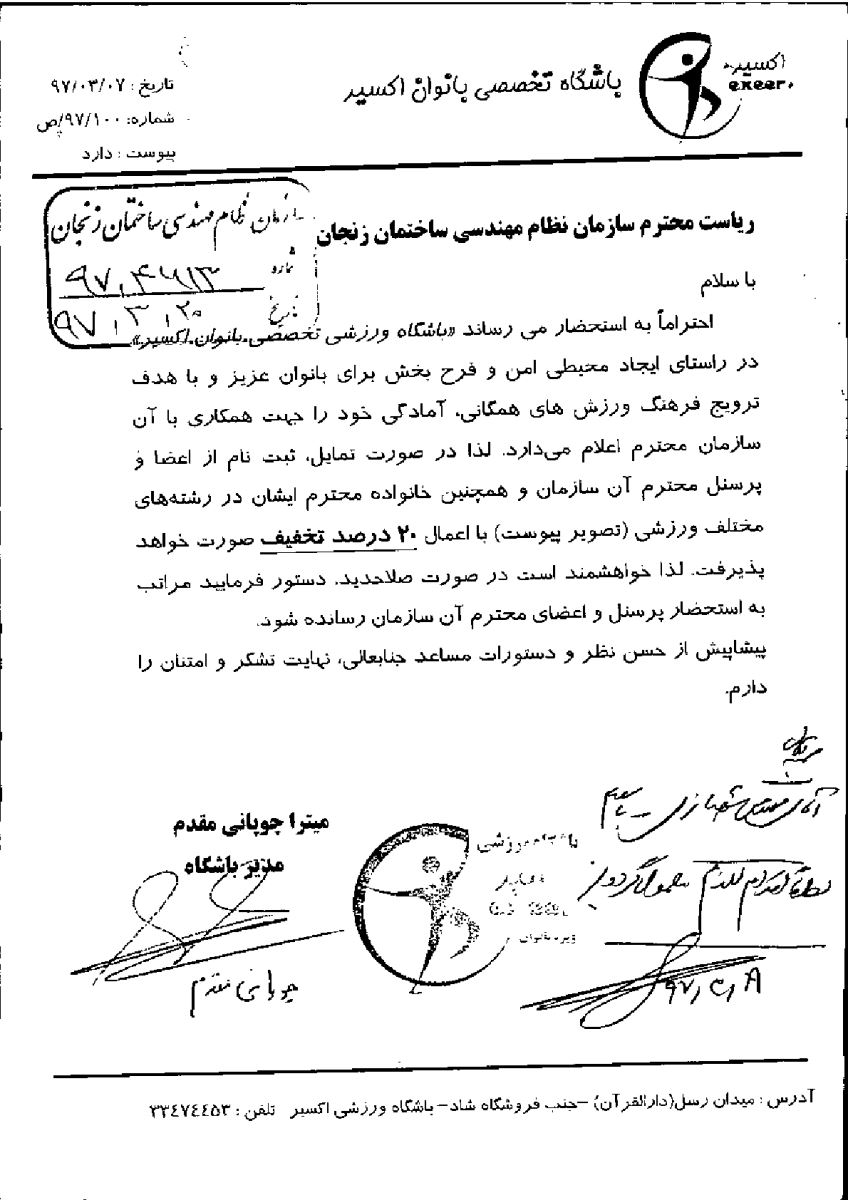 اکسیر
exeer
باشگاه تخصصی بانوان اکسیر
تاریخ : ۹۷/۰۳/۰۷
شماره: ۹۷/۱۰۰/ص
پیوست : دارد
سازمان نظام مهندسی ساختمان زنجان
شماره
تاریخ ۹۷/۳/۲۰
ریاست محترم سازمان نظام مهندسی ساختمان زنجان
با سلام
احتراماً به استحضار می رساند «باشگاه ورزشی تخصصی بانوان اکسیر»
در راستای ایجاد محیطی امن و فرح بخش برای بانوان عزیز و با هدف
ترویج فرهنگ ورزش های همگانی، آمادگی خود را جهت همکاری با آن
سازمان محترم اعلام می‌دارد. لذا در صورت تمایل، ثبت نام از اعضا و
پرسنل محترم آن سازمان و همچنین خانواده محترم ایشان در رشته‌های
مختلف ورزشی (تصویر پیوست) با اعمال ۲۰ درصد تخفیف صورت خواهد
پذیرفت. لذا خواهشمند است در صورت صلاحدید، دستور فرمایید مراتب
به استحضار پرسنل و اعضای محترم آن سازمان رسانده شود.
پیشاپیش از حسن نظر و دستورات مساعد جنابعالی، نهایت تشکر و امتنان را
دارم.
میترا چوپانی مقدم
مدیر باشگاه
چوپانی مقدم
باشگاه ورزشی
آقای مهندس
لطفاً اقدام لازم معمول گردد
آدرس : میدان رسل(دارالقرآن) –جنب فروشگاه شاد– باشگاه ورزشی اکسیر تلفن : ۳۳۴۷۴۴۵۳